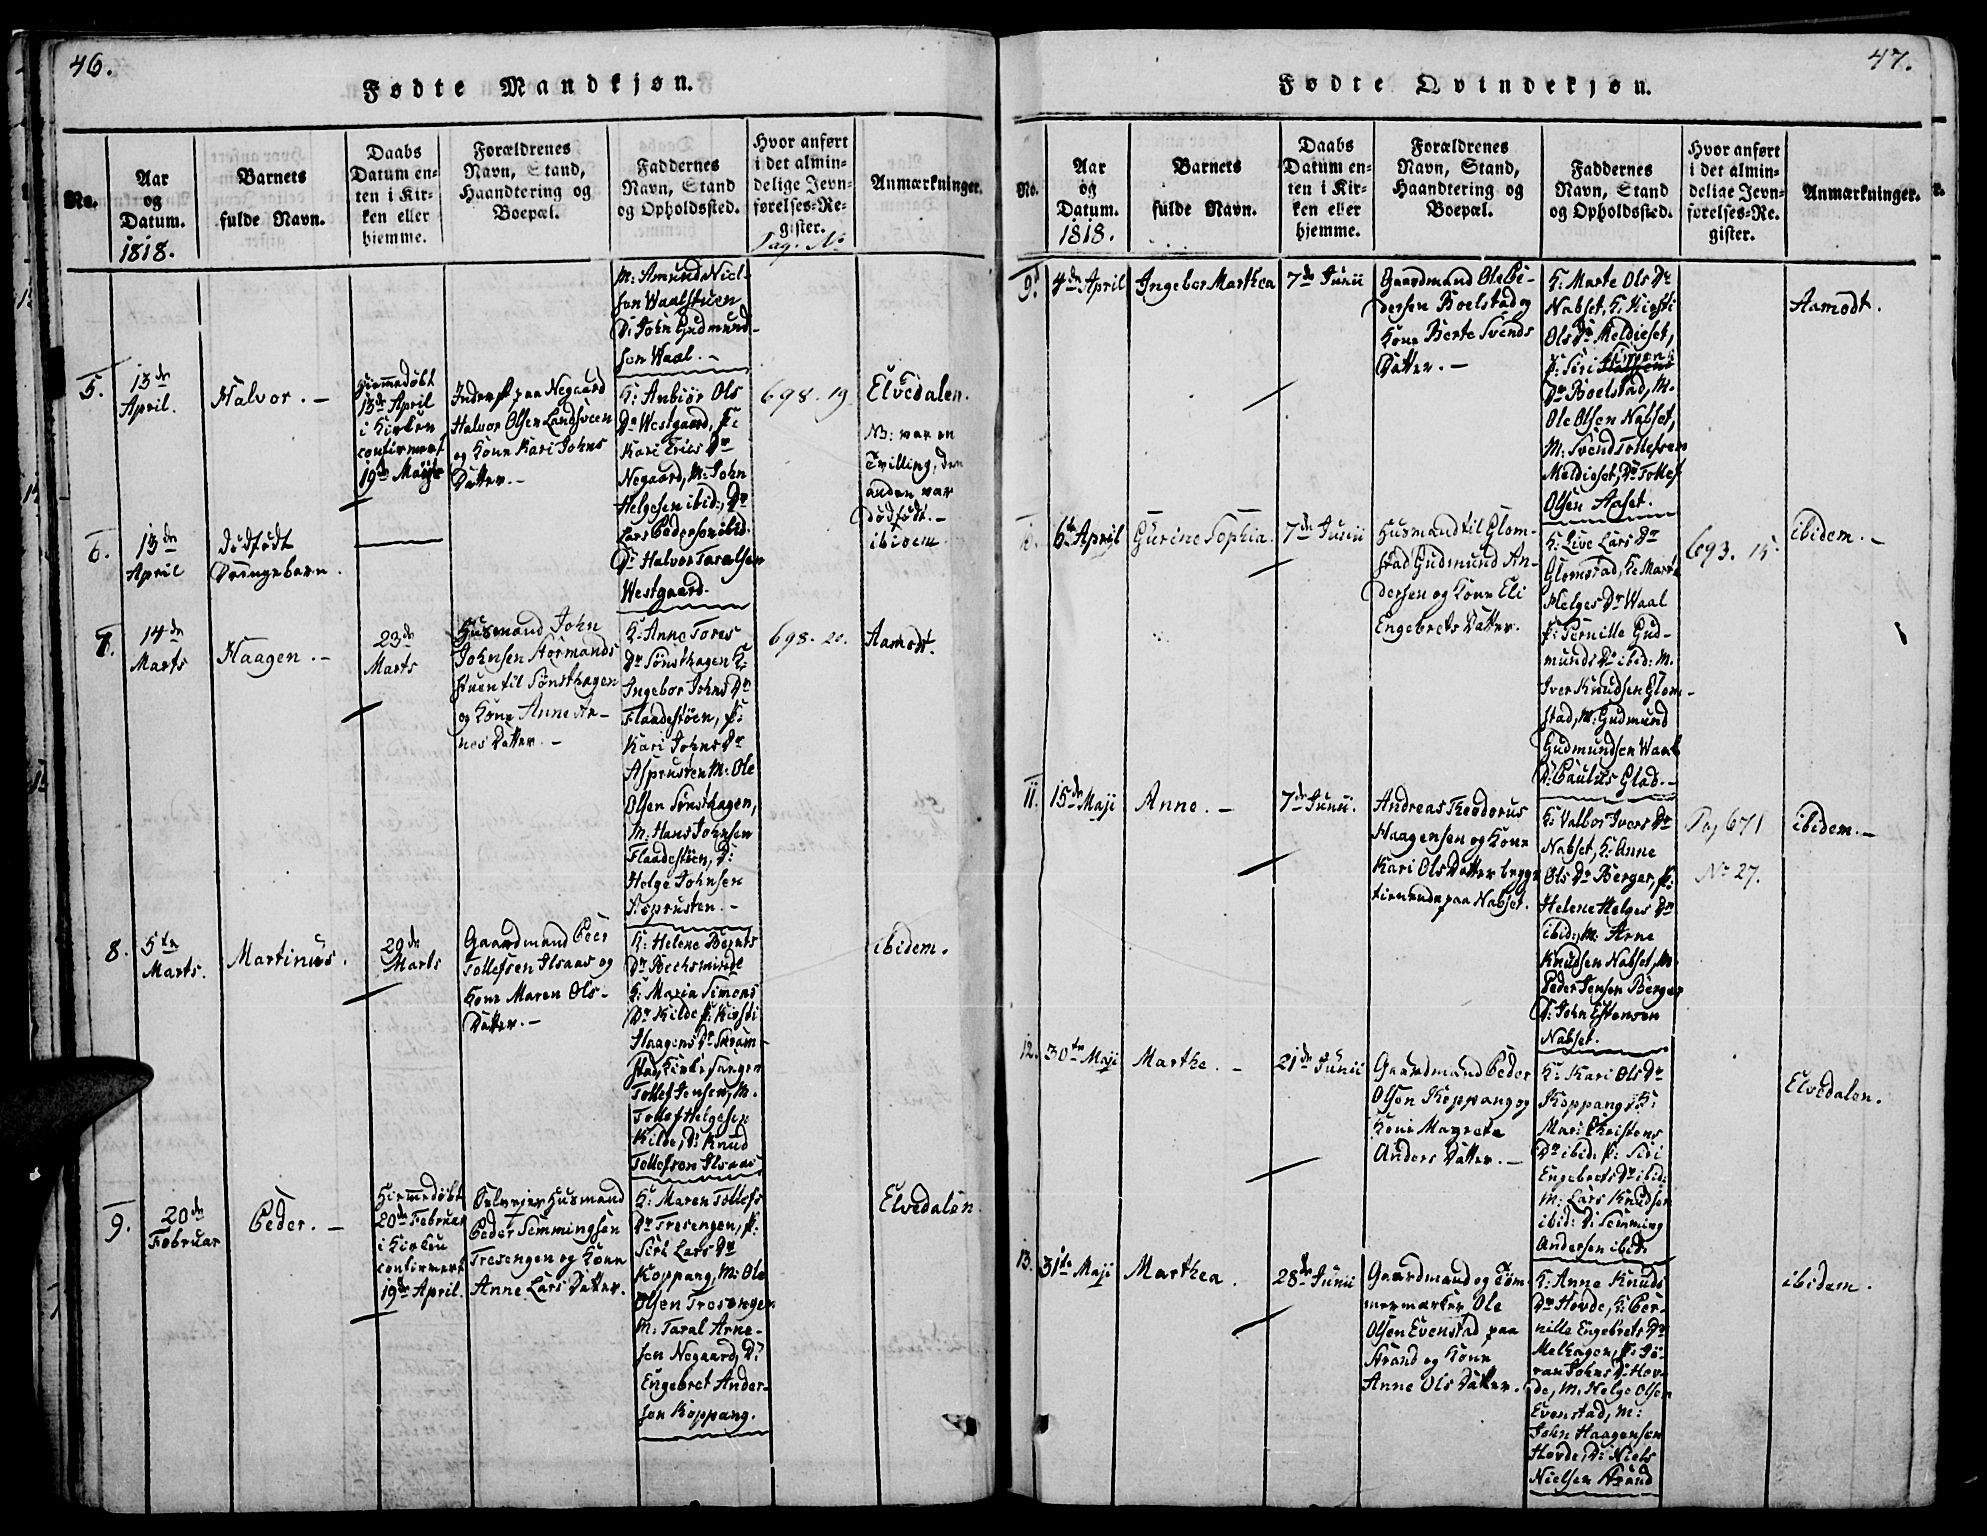 46.
Fødte Mandkjøn.
No.
Aar
og
Datum.
1818.
Barnets
fulde Navn.
Daabs
Datum en-
ten i Kir-
ken eller
hjemme.
Forældrenes
Navn, Stand,
Haandtering og
Boepæl.
Faddernes
Navn, Stand
og Opholdssted.
Hvor anført
i det almin-
delige Jevn-
førelses-Re-
gister.
Pag. No
Anmærkninger.
M: Amund Niel-
sen Waalstuen
D: John Gudmund-
sen Waal. -
5.
13de
April.
Halvor. -
Hiemmedøbt
13de April
i Kirken
confirmert
19de Maji
Inderst paa Negaard
Halvor Olsen Landsveen
og Kone Kari Johns
Datter. -
K: Anbiør Ols
Dr Westgaard, P:
Kari Erics Dr
Negaard, M: John
Helgesen ibid:, Dr
Lars Pedersen ibid.
D: Halvor Taralsen
Westgaard.
698. 19.
Elvedalen.
NB: var en
Tvilling, den
anden var
dødfødt. -
6.
13de
April
Dødfødt
Drengebarn.
ibidem.
7.
14de
Marts
Haagen. -
23de
Marts
Husmand John
Johnsen Stormands
stuen til Sønsthagen
og Kone Anne Ar-
nes Datter. -
K: Anne Tores
Dr Sønsthagen K:
Ingebor Johns Dr
Flaadestøen, P:
Kari Johns Dr
Asprusten M: Ole
Olsen Sønsthagen,
M: Hans Johnsen
Flaadestøen, D:
Helge Johnsen
Asprusten. -
698. 20.
Aamodt.
8.
5te
Marts.
Martinus.
29de
Marts
Gaardmand Peer
Tollefsen Ilsaas og
Kone Maren Ols-
Datter. -
K: Helene Bernts
Dr Bechsminde
K: Maria Simens
Dr Kilde P: Kirsti
Haagens Dr Skram-
stad, Kirkesanger
Tollef Jensen, M.
Tollef Helgesen
Kilde, D: Knud
Tollefsen Ilsaas
ibidem.
9.
20de
Februar
Peder. -
Hiemmedøbt
20de Februar
i Kirken
confirmert
19de April.
Selvejer Husmand
Peder Semmingsen
Tresengen og Kone
Anne Lars Datter.
K: Maren Tollefs
Dr Tresengen, P.
Siri Lars Dr
Koppang, M: Ole
Olsen Tresengen
M: Taral Arne-
sen Negaard, D:
Engebret Ander-
sen Koppang.
Elvedalen.
47.
Fødte Qvindekjøn.
No.
Aar
og
Datum.
1818.
Barnets
fulde Navn.
Daabs
Datum en-
ten i Kir-
ken eller
hjemme.
Forældrenes
Navn, Stand,
Haandtering og
Boepæl.
Faddernes
Navn, Stand
og Opholdssted.
Hvor anført
i det almin-
delige Jevn-
førelses-Re-
gister.
Anmærkninger.
9.
4de April
Ingebor Marthea
7de Junii
Gaardmand Ole Pe-
dersen Boelstad og
Kone Berte Svends
Datter. -
K: Marte Ols Dr
Nabset, K: Kiersti
Ols Dr Meldieset,
P: Siri
Dr Boelstad, M.
Ole Olsen Nabset,
M: Svend Tollefsen
Meldieset, D: Tollef
Olsen Aaset.
Aamodt.
10.
6te April
Gurine Sophia.
7de Junii
Husmand til Glom-
stad Gudmund An-
dersen og Kone Eli
Engebrets Datter.
K: Live Lars Dr
Glomstad, K: Marte
Helges Dr Waal
P: Pernille Gud-
munds Dr ibid: M.
Iver Knudsen Glom-
stad, M: Gudmund
Gudmundsen Waal
D: Paulus Glad. -
693. 15.
ibidem. -
11.
15de Maji
Anne. -
7de Junii.
Andreas Theodorus
Haagensen og Kone
Kari Ols Datter byg-
tiemænde paa Nabset.
K: Valbor Ivers Dr
Nabset, K: Anne
Ols Dr Berger, P:
Helene Helges Dr
ibid:, M: Arne
Knudsen Nabset, M:
Peder Jensen Berger
D: John Estensen
Nabset.
Pag 671
No 27.
ibidem. -
12.
30te Maji
Marthe. -
21de Junii
Gaardmand Peder
Olsen Koppang og
Kone Magrete
Anders Datter. -
K: Kari Ols Dr
Koppang, K:
Mari Christens
Dr ibid: P: Siri
Engebrets Dr ibid:
M: Lars Knudsen
ibid: D: Semming
Andersen ibid.
Elvedalen.
13.
31te Maji
Marthea.
28de Junii
Gaardmand og Tøm-
mermærker Ole
Olsen Evenstad paa
Strand og Kone
Anne Ols Datter.
K: Anne Knuds
Dr Hovde, K: Per-
nille Engebrets Dr
Melhagen, P: Gø-
ran Johns Dr Hov-
de, M: Helge Olsen
Evenstad, M:
John Haagensen
Hovde, D: Niels
Nielsen Strand
ibidem.